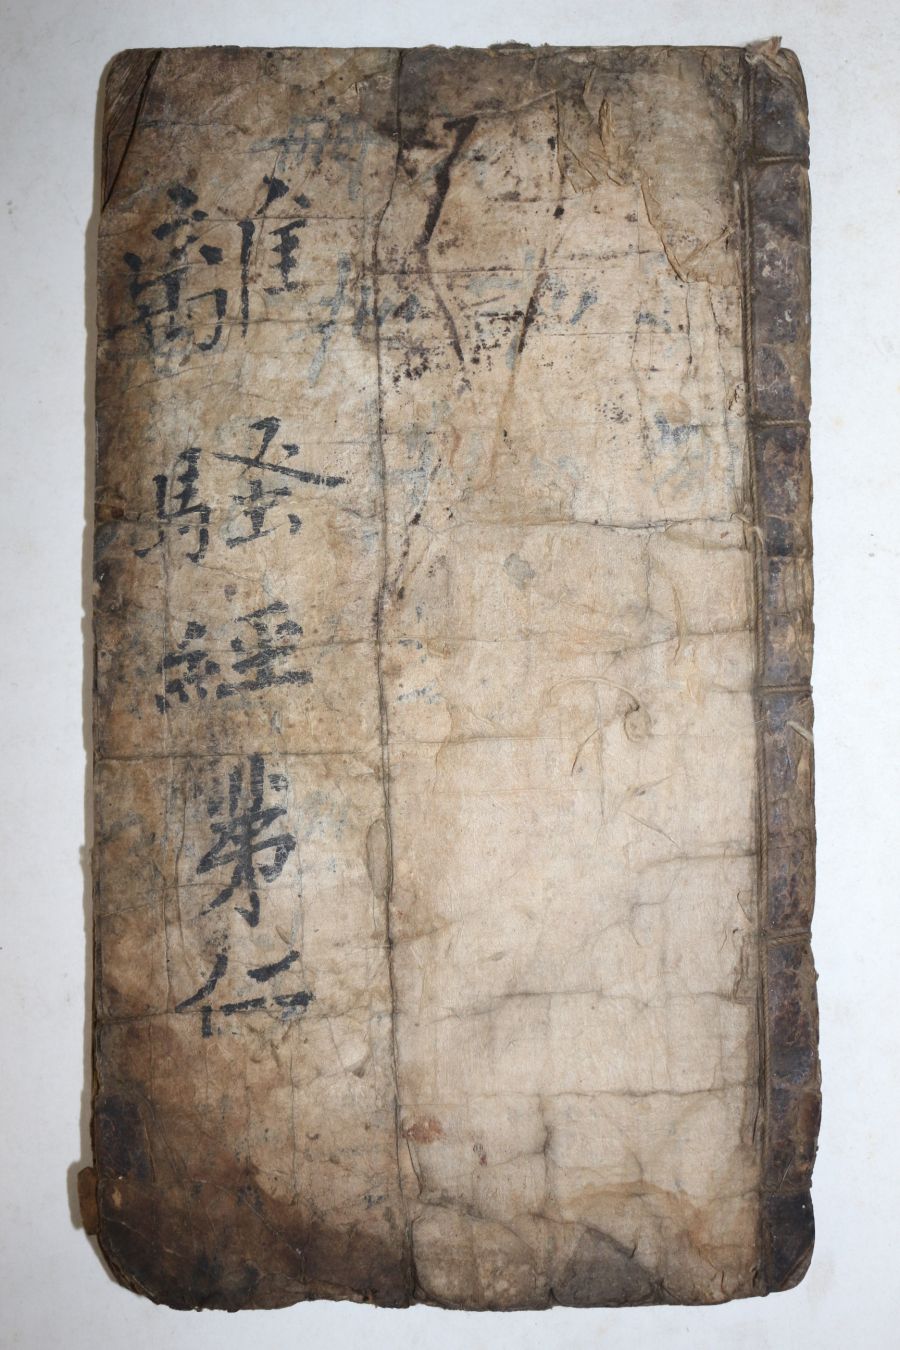 離騷經第仁